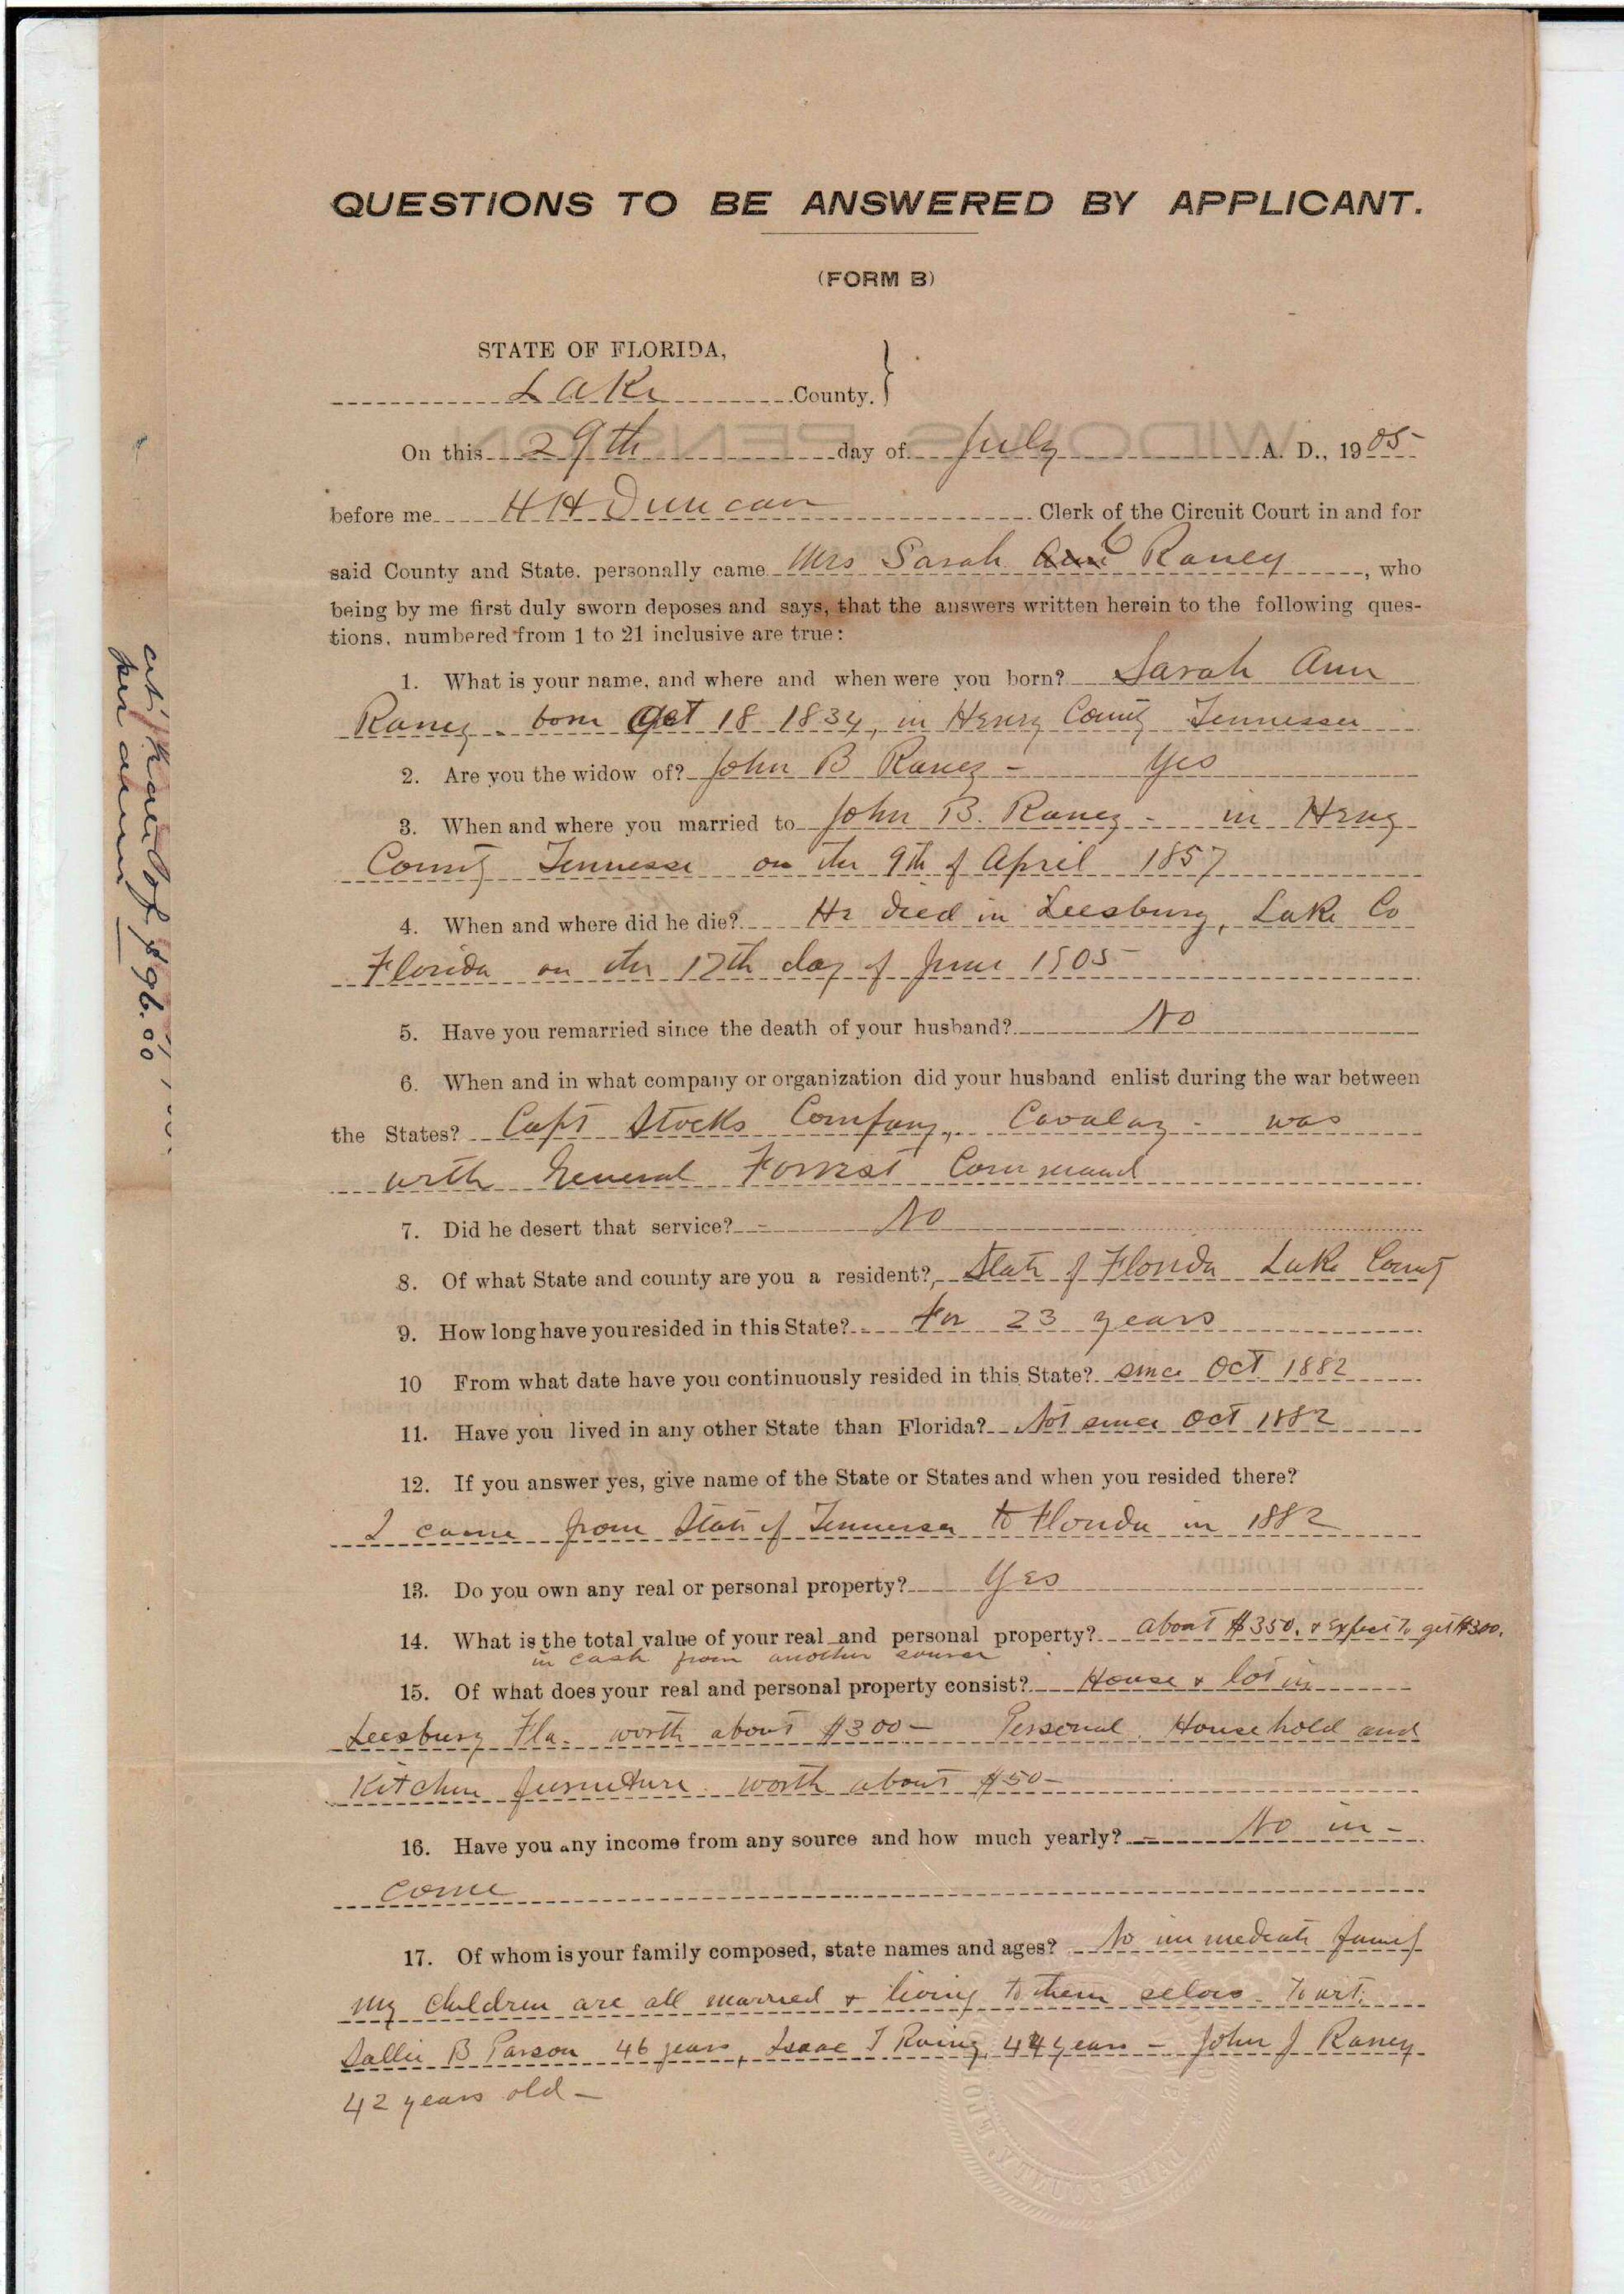 QUESTIONS TO BE ANSWERED BY APPLICANT.
(FORM B)
STATE OF FLORIDA,
Lake County.
On this 29th day of July A. D., 1905
before me H H Duncan Clerk of the Circuit Court in and for
said County and State, personally came Mrs Sarah Ann C Raney, who
being by me first duly sworn deposes and says, that the answers written herein to the following ques-
tions, numbered from 1 to 21 inclusive are true:
1. What is your name, and where and when were you born? Sarah Ann
Raney. born Oct 18 1834, in Henry County Tennessee
2. Are you the widow of? John B Raney - Yes
3. When and where you married to John B. Raney - in Henry
County Tennessee on the 9th of April 1857
4. When and where did he die? He died in Leesburg, Lake Co
Florida on the 17th day of June 1905
5. Have you remarried since the death of your husband? No
6. When and in what company or organization did your husband enlist during the war between
the States? Capt Stocks Company, Cavalry - was
with General Forrest Command
7. Did he desert that service? No
8. Of what State and county are you a resident? State of Florida Lake County
9. How long have you resided in this State? For 23 years
10 From what date have you continuously resided in this State? since Oct 1882
11. Have you lived in any other State than Florida? Not since Oct 1882
12. If you answer yes, give name of the State or States and when you resided there?
I came from State of Tennessee to Florida in 1882
13. Do you own any real or personal property? Yes
14. What is the total value of your real and personal property? about $350. & expect to get $300.
in cash from another source
15. Of what does your real and personal property consist? House & lot in
Leesburg Fla. worth about $300- Personal. Household and
Kitchen furniture. worth about $50-
16. Have you any income from any source and how much yearly? No in-
come
17. Of whom is your family composed, state names and ages? No immediate family
my children are all married & living to them selves. To wit.
Sallie B Parson 46 years, Isaac T Raney, 44 years - John J Raney
42 years old -
$96.00
per annum